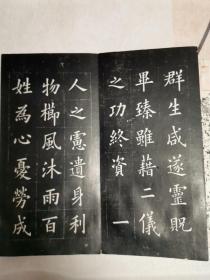 群生咸遂靈貺
畢臻雖藉二儀
之功終資一
人之慮遺身利
物櫛風沐雨百
姓為心憂勞成